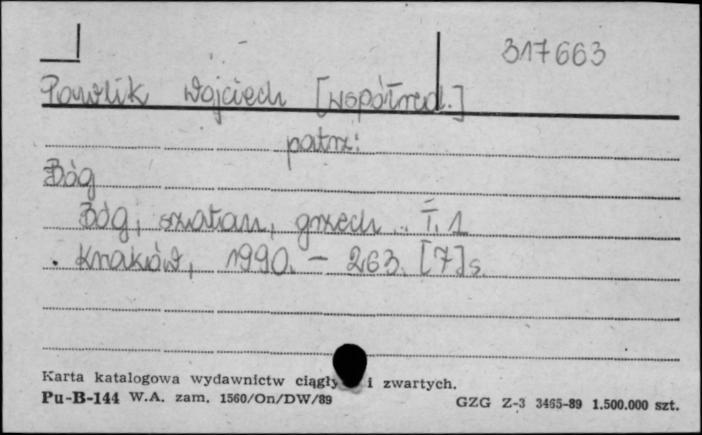 317663
Pawlik Wojciech [współred.]
patrz:
Bóg
Bóg, szatan, grzech.. T. 1
Kraków, 1990. - 263. [7] s.
Karta katalogowa wydawnictw ciągły i zwartych.
Pu-B-144 W.A. zam. 1560/On/DW/89
GZG Z-3 3465-89 1.500.000 szt.